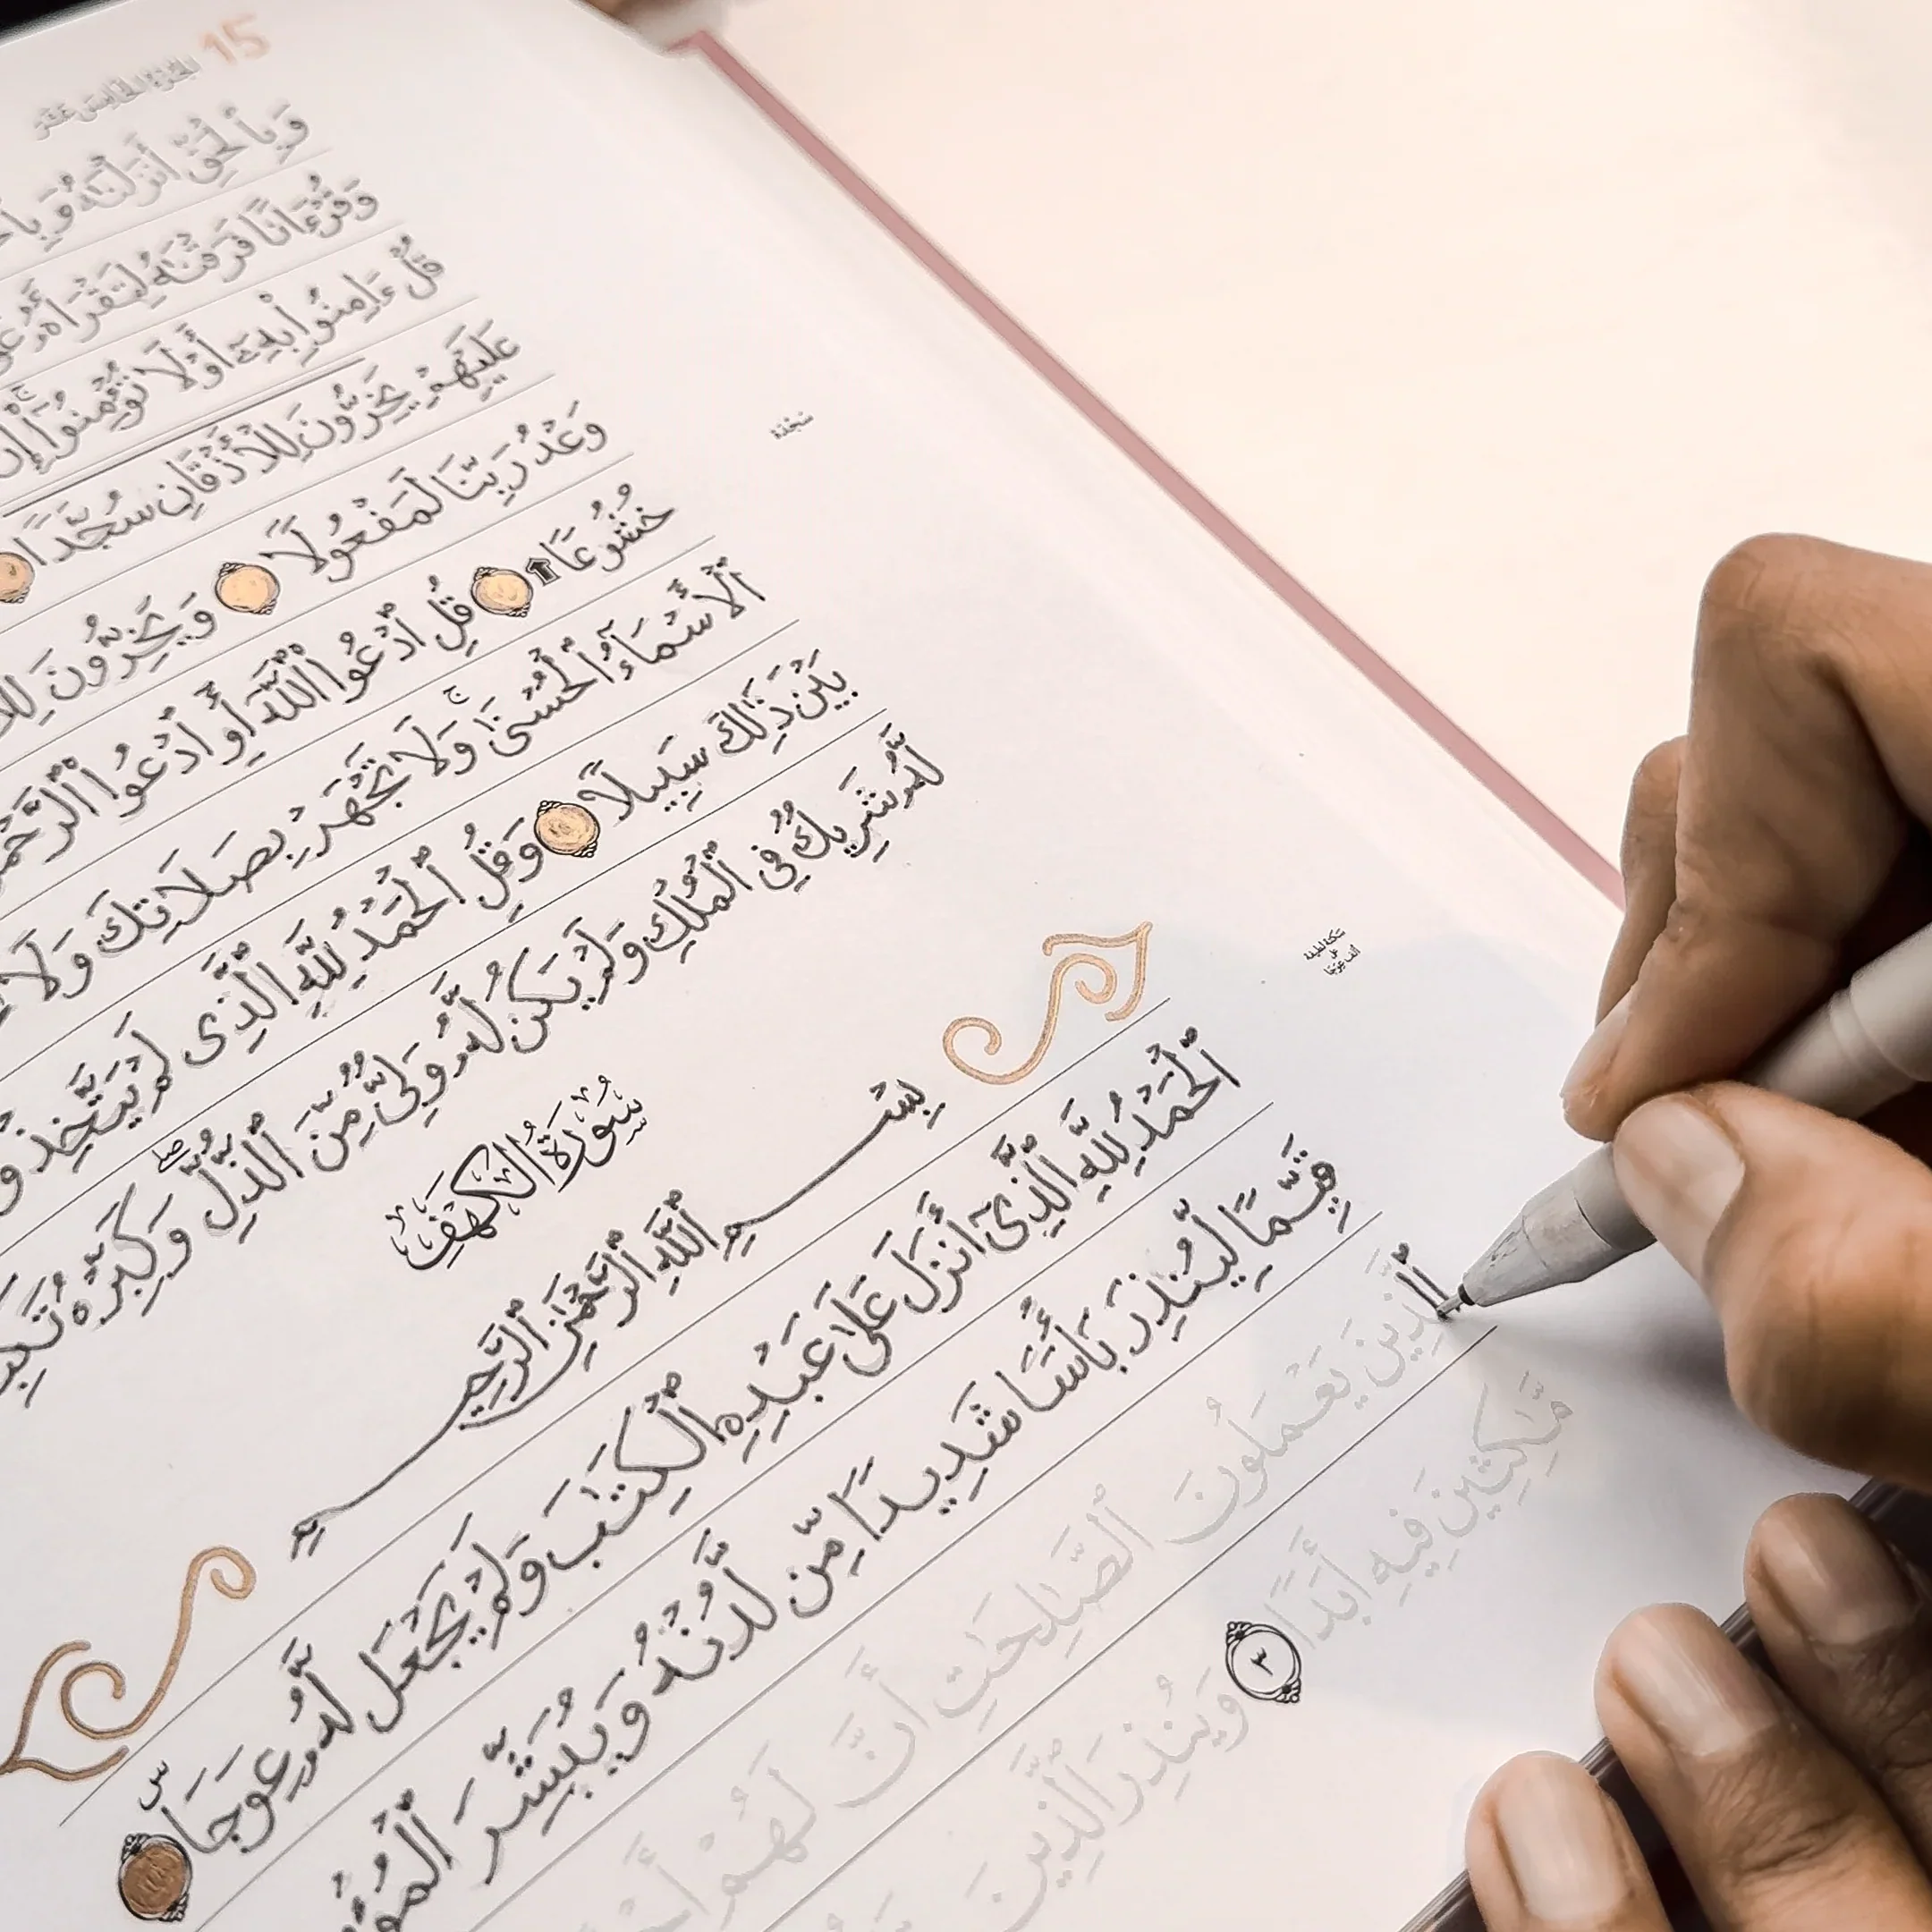 15 الجزء الخامس عشر
وَبِٱلْحَقِّ أَنزَلْنَٰهُ وَبِٱ
وَقُرْءَانًا فَرَقْنَٰهُ لِتَقْرَأَهُۥ عَ
قُلْ ءَامِنُوا۟ بِهِۦٓ أَوْ لَا تُؤْمِنُوٓا۟ ۚ إِنَّ
عَلَيْهِمْ يَخِرُّونَ لِلْأَذْقَانِ سُجَّدًا
سجدة
وَعْدُ رَبِّنَا لَمَفْعُولًا وَيَخِرُّونَ لِلْأَ
خُشُوعًا قُلِ ٱدْعُوا۟ ٱللَّهَ أَوِ ٱدْعُوا۟ ٱلرَّحْمَ
ٱلْأَسْمَآءُ ٱلْحُسْنَىٰ ۚ وَلَا تَجْهَرْ بِصَلَاتِكَ وَلَا
بَيْنَ ذَٰلِكَ سَبِيلًا وَقُلِ ٱلْحَمْدُ لِلَّهِ ٱلَّذِى لَمْ يَتَّخِذْ وَ
لَّهُۥ شَرِيكٌ فِى ٱلْمُلْكِ وَلَمْ يَكُن لَّهُۥ وَلِىٌّ مِّنَ ٱلذُّلِّ ۖ وَكَبِّرْهُ تَكْبِ
سُورَةُ الكَهْفِ
بِسْمِ ٱللَّهِ ٱلرَّحْمَٰنِ ٱلرَّحِيمِ
سكتة لطيفة على ألف عوجا
ٱلْحَمْدُ لِلَّهِ ٱلَّذِىٓ أَنزَلَ عَلَىٰ عَبْدِهِ ٱلْكِتَٰبَ وَلَمْ يَجْعَل لَّهُۥ عِوَجَا ۜ
قَيِّمًا لِّيُنذِرَ بَأْسًا شَدِيدًا مِّن لَّدُنْهُ وَيُبَشِّرَ ٱلْمُؤْ
ٱلَّذِينَ يَعْمَلُونَ ٱلصَّٰلِحَٰتِ أَنَّ لَهُمْ أَجْ
مَّٰكِثِينَ فِيهِ أَبَدًا ٣ وَيُنذِرَ ٱلَّذِينَ